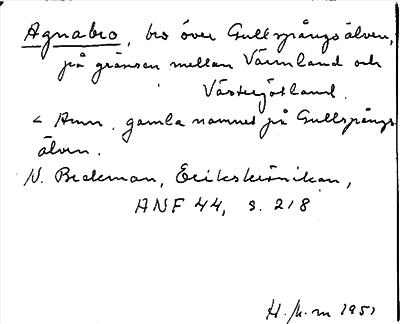 Agnabro, bro över Gullspångsälven,
på gränsen mellan Värmland och
Västergötland.
< Amn, gamla namnet på Gullspångs-
älven.
N. Beckman, Erikskrönikan,
ANF 44, s. 218
H. M-m 1951